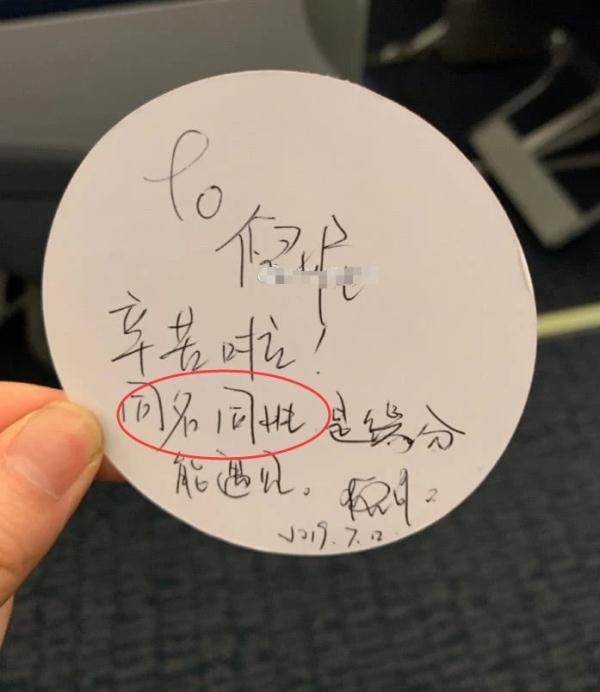 To
辛苦啦！
同名同姓 是缘分
能遇见。
2019.7.12